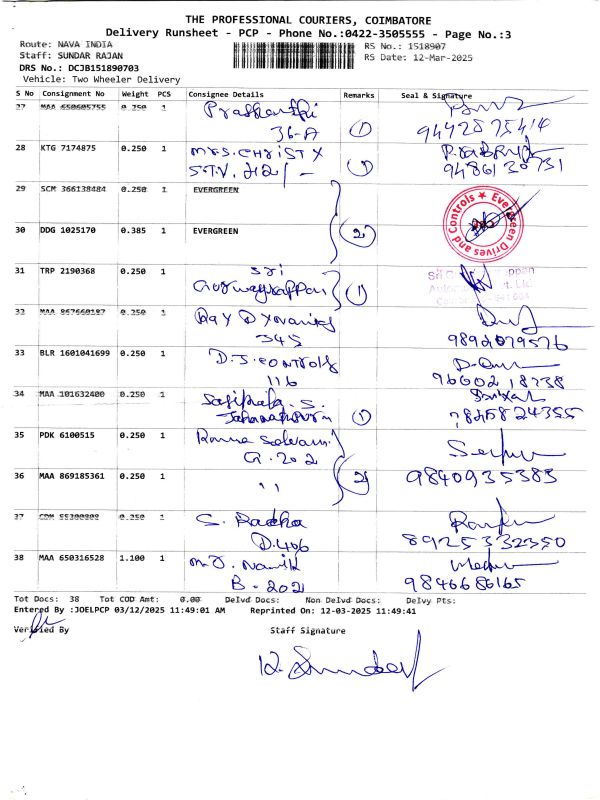 THE PROFESSIONAL COURIERS, COIMBATORE
Delivery Runsheet - PCP - Phone No.:0422-3505555 - Page No.:3
Route: NAVA INDIA RS No.: 1518907
Staff: SUNDAR RAJAN RS Date: 12-Mar-2025
DRS No.: DCJB151890703
Vehicle: Two Wheeler Delivery
S No Consignment No Weight PCS Consignee Details Remarks Seal & Signature
27 MAA 650605755 0.250 1 Prashanthi
36-A 1 9442575414
28 KTG 7174875 0.250 1 Mrs. CHRISTY
S.T.V. 1 9486130731
29 SCM 366138484 0.250 1 EVERGREEN
Evergreen Drives and Controls
30 DDG 1025170 0.385 1 EVERGREEN 2
31 TRP 2190368 0.250 1 Sri
1
32 MAA 867660187 0.250 1
345 9892079576
33 BLR 1601041699 0.250 1 D.J. CONTROLS
116 9660218738
34 MAA 101632400 0.250 1 S.
1 7845824355
35 PDK 6100515 0.250 1 Rama
G.202
36 MAA 869185361 0.250 1 ,, 2 9840935383
37 0.250 1 S. Radha
D.406 8925332350
38 MAA 650316528 1.100 1
B-202 9846686165
Tot Docs: 38 Tot COD Amt: 0.00 Delvd Docs: Non Delvd Docs: Delvy Pts:
Entered By :JOELPCP 03/12/2025 11:49:01 AM Reprinted On: 12-03-2025 11:49:41
Verified By Staff Signature